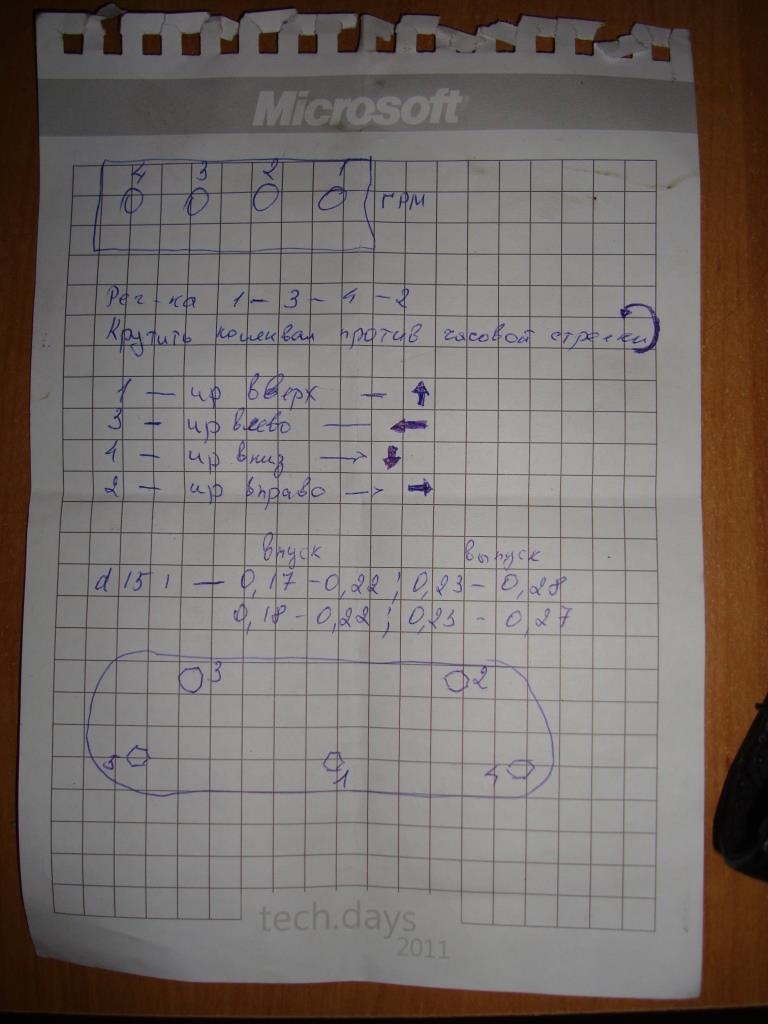 Microsoft
4 3 2 1
ГРМ
Рег-ка 1 - 3 - 4 - 2
Крутить коленвал против часовой стрелки
1 — up вверх — ↑
3 - up влево — ←
4 - up вниз → ↓
2 - up вправо → →
впуск выпуск
d 15 1 — 0,17 - 0,22 ; 0,23 - 0,28
0,18 - 0,22 ; 0,23 - 0,27
3 2
5 1 4
tech.days
2011